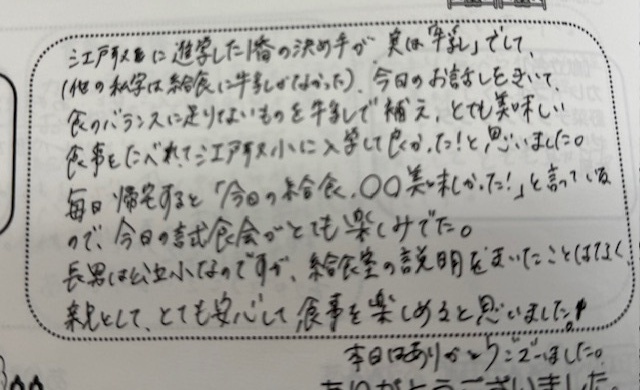 江戸川に進学した1番の決め手が、実は「牛乳」でして、
(他の私学は給食に牛乳がなかった)、今日のお話しをきいて、
食のバランスに足りないものを牛乳で補え、とても美味しい
食事をたべれて江戸川小に入学して良かった!と思いました。
毎日帰宅すると「今日の給食、〇〇美味しかった!」と言っている
ので、今日の試食会がとても楽しみでした。
長男は公立小なのですが、給食室の説明をきいたことはなく、
親として、とても安心して食事を楽しめると思いました!
本日はありがとうございました。
ありがとうございました。